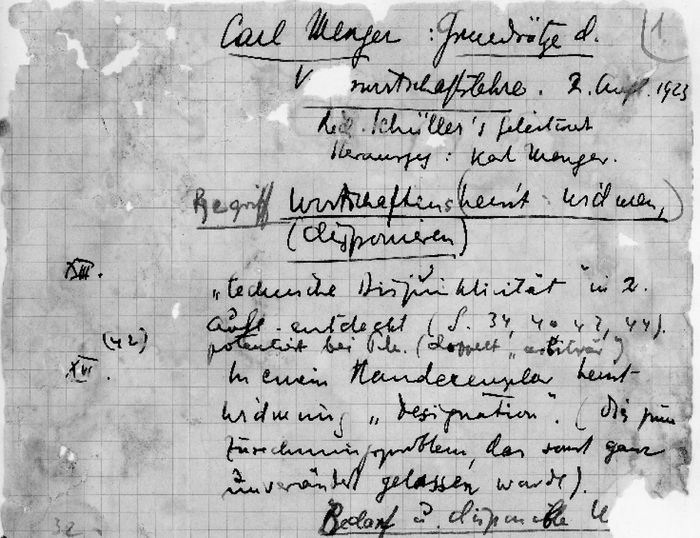 1
Carl Menger : Grundsätze d.
V wirtschaftslehre. 2. Aufl. 1923
Rich. Schüller's Geleitwort
Herausgg: Karl Menger.
Begriff Wirtschaften (heisst widmen,)
(disponieren)
XIII.
„technische Disjunktivität" in 2.
Aufl. entdeckt (S. 34, 40 42, 44).
(42)
potentiert bei (doppelt „arbiträr")
XVI.
In einem Handexemplar heisst
widmung „designation". (Dis
Zurechnungsproblem, das sonst ganz
unverändert gelassen wurde).
Bedarf u. disponible
32